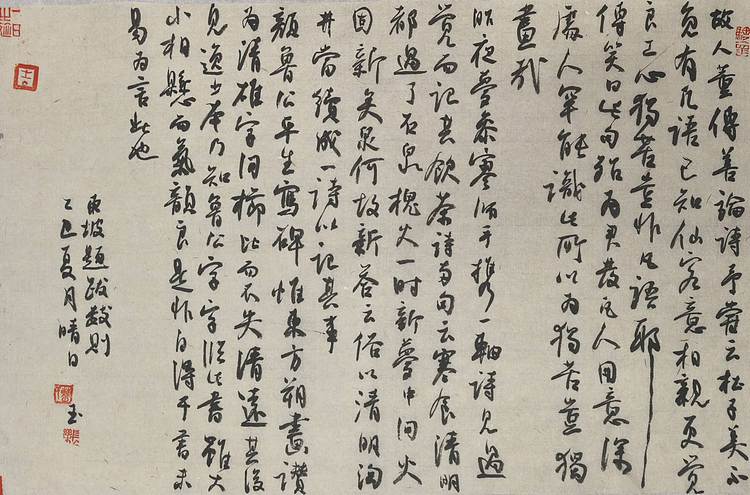 故人董傳善論詩予嘗云杜子美不
免有凡語已知仙客意相親更覺
良工心獨苦豈非凡語耶
傳笑曰此句殆為君發凡人用意深
處人罕能識此所以為獨苦豈獨
畫哉
昨夜夢參寥師手攜一軸詩見過
覺而記其飲茶詩兩句云寒食清明
都過了石泉槐火一時新夢中问火
固新矣泉何故新答云俗以清明淘
井當續成一詩以記其事
顏魯公平生寫碑惟東方朔畫讚
為清雄字间櫛比而不失清遠其後
見逸少本乃知魯公字字從此書雖大
小相懸而氣韻良是非自得于書未
易為言此也
東坡題跋數則
乙巳夏月晴日 玉